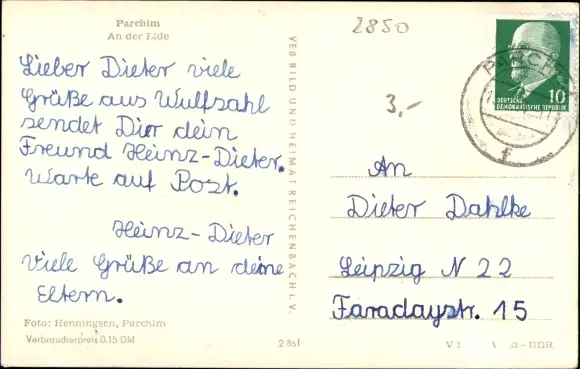 Parchim
An der Elde
2850
3,-
Lieber Dieter viele
Grüße aus Wulfsahl
sendet Dir dein
Freund Heinz-Dieter.
Warte auf Post.
Heinz-Dieter
Viele Grüße an deine
Eltern.
Foto: Henningsen, Parchim
Verbraucherpreis 0.15 DM
VEB BILD UND HEIMAT REICHENBACH I. V.
2/861
DEUTSCHE
DEMOKRATISCHE REPUBLIK
10
PARCHIM
An
Dieter Dahlke
Leipzig N 22
Faradaystr. 15
DDR